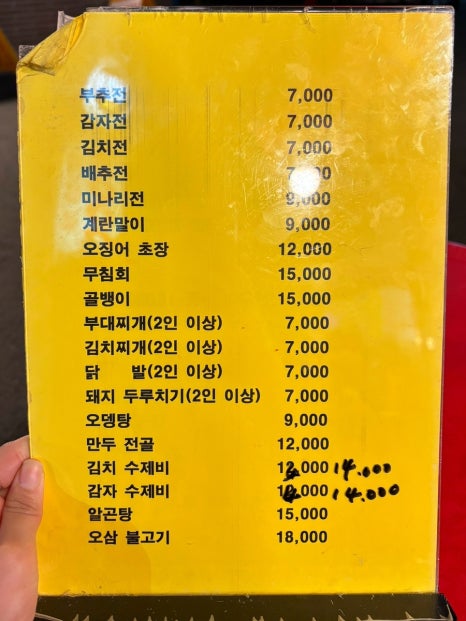 부추전 7,000
감자전 7,000
김치전 7,000
배추전 7,000
미나리전 9,000
계란말이 9,000
오징어 초장 12,000
무침회 15,000
골뱅이 15,000
부대찌개(2인 이상) 7,000
김치찌개(2인 이상) 7,000
닭 발(2인 이상) 7,000
돼지 두루치기(2인 이상) 7,000
오뎅탕 9,000
만두 전골 12,000
김치 수제비 12,000 14.000
감자 수제비 14.000
알곤탕 15,000
오삼 불고기 18,000